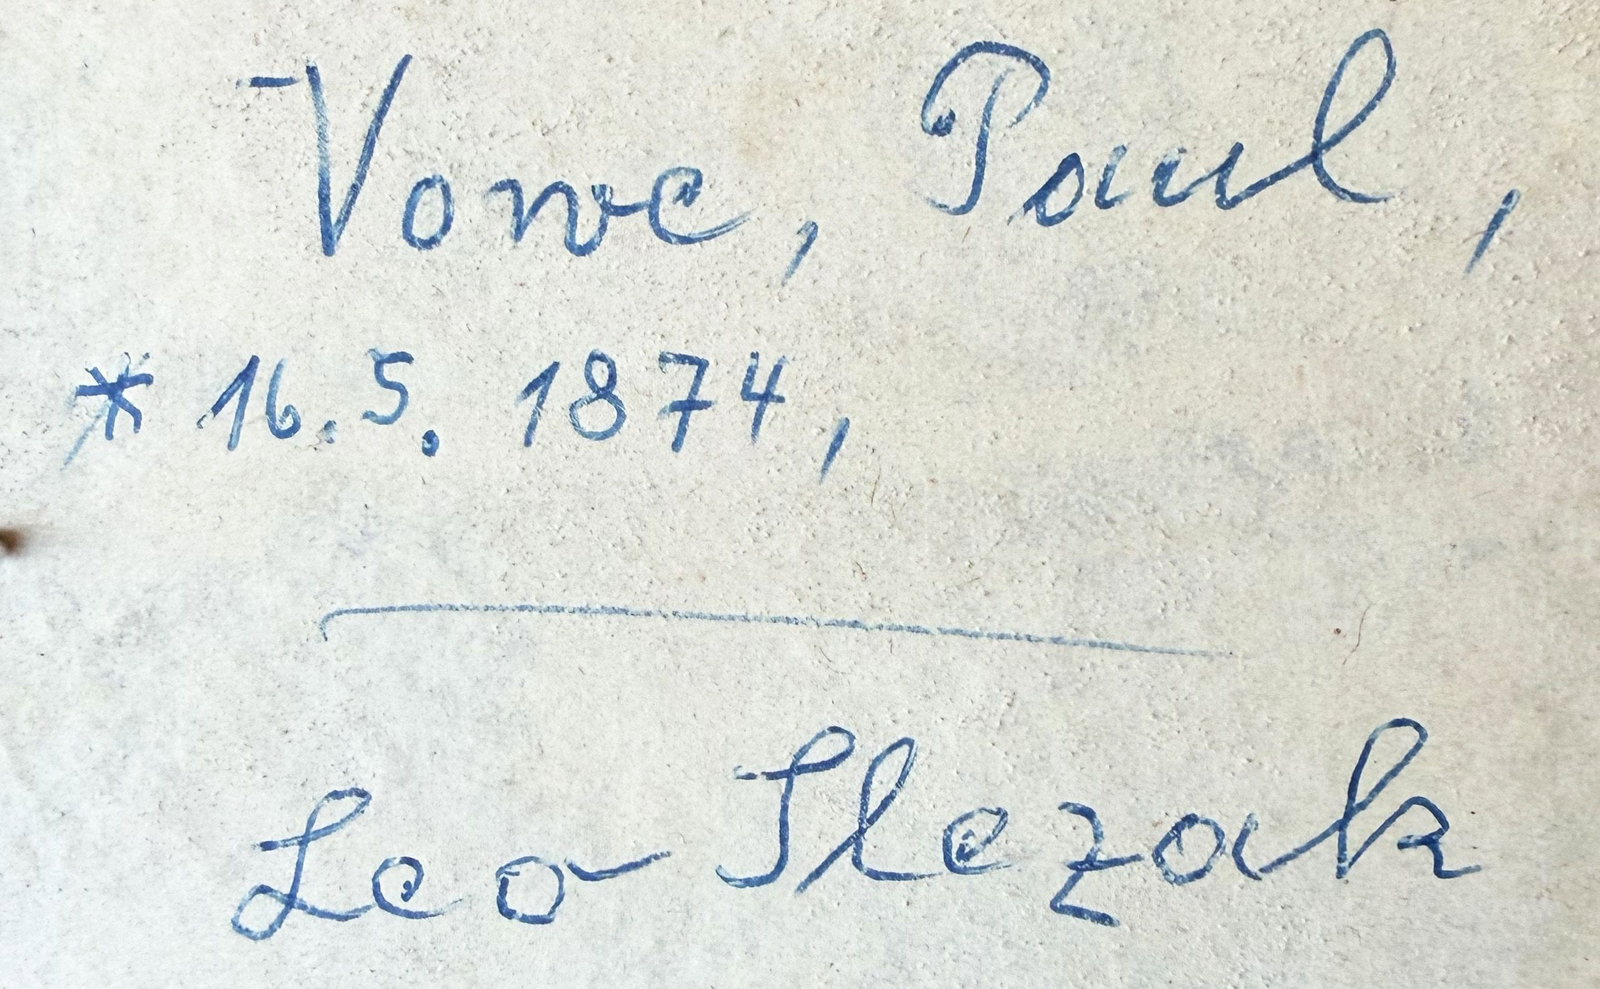 Vowe, Paul,
* 16.5. 1874,
Leo Slezak